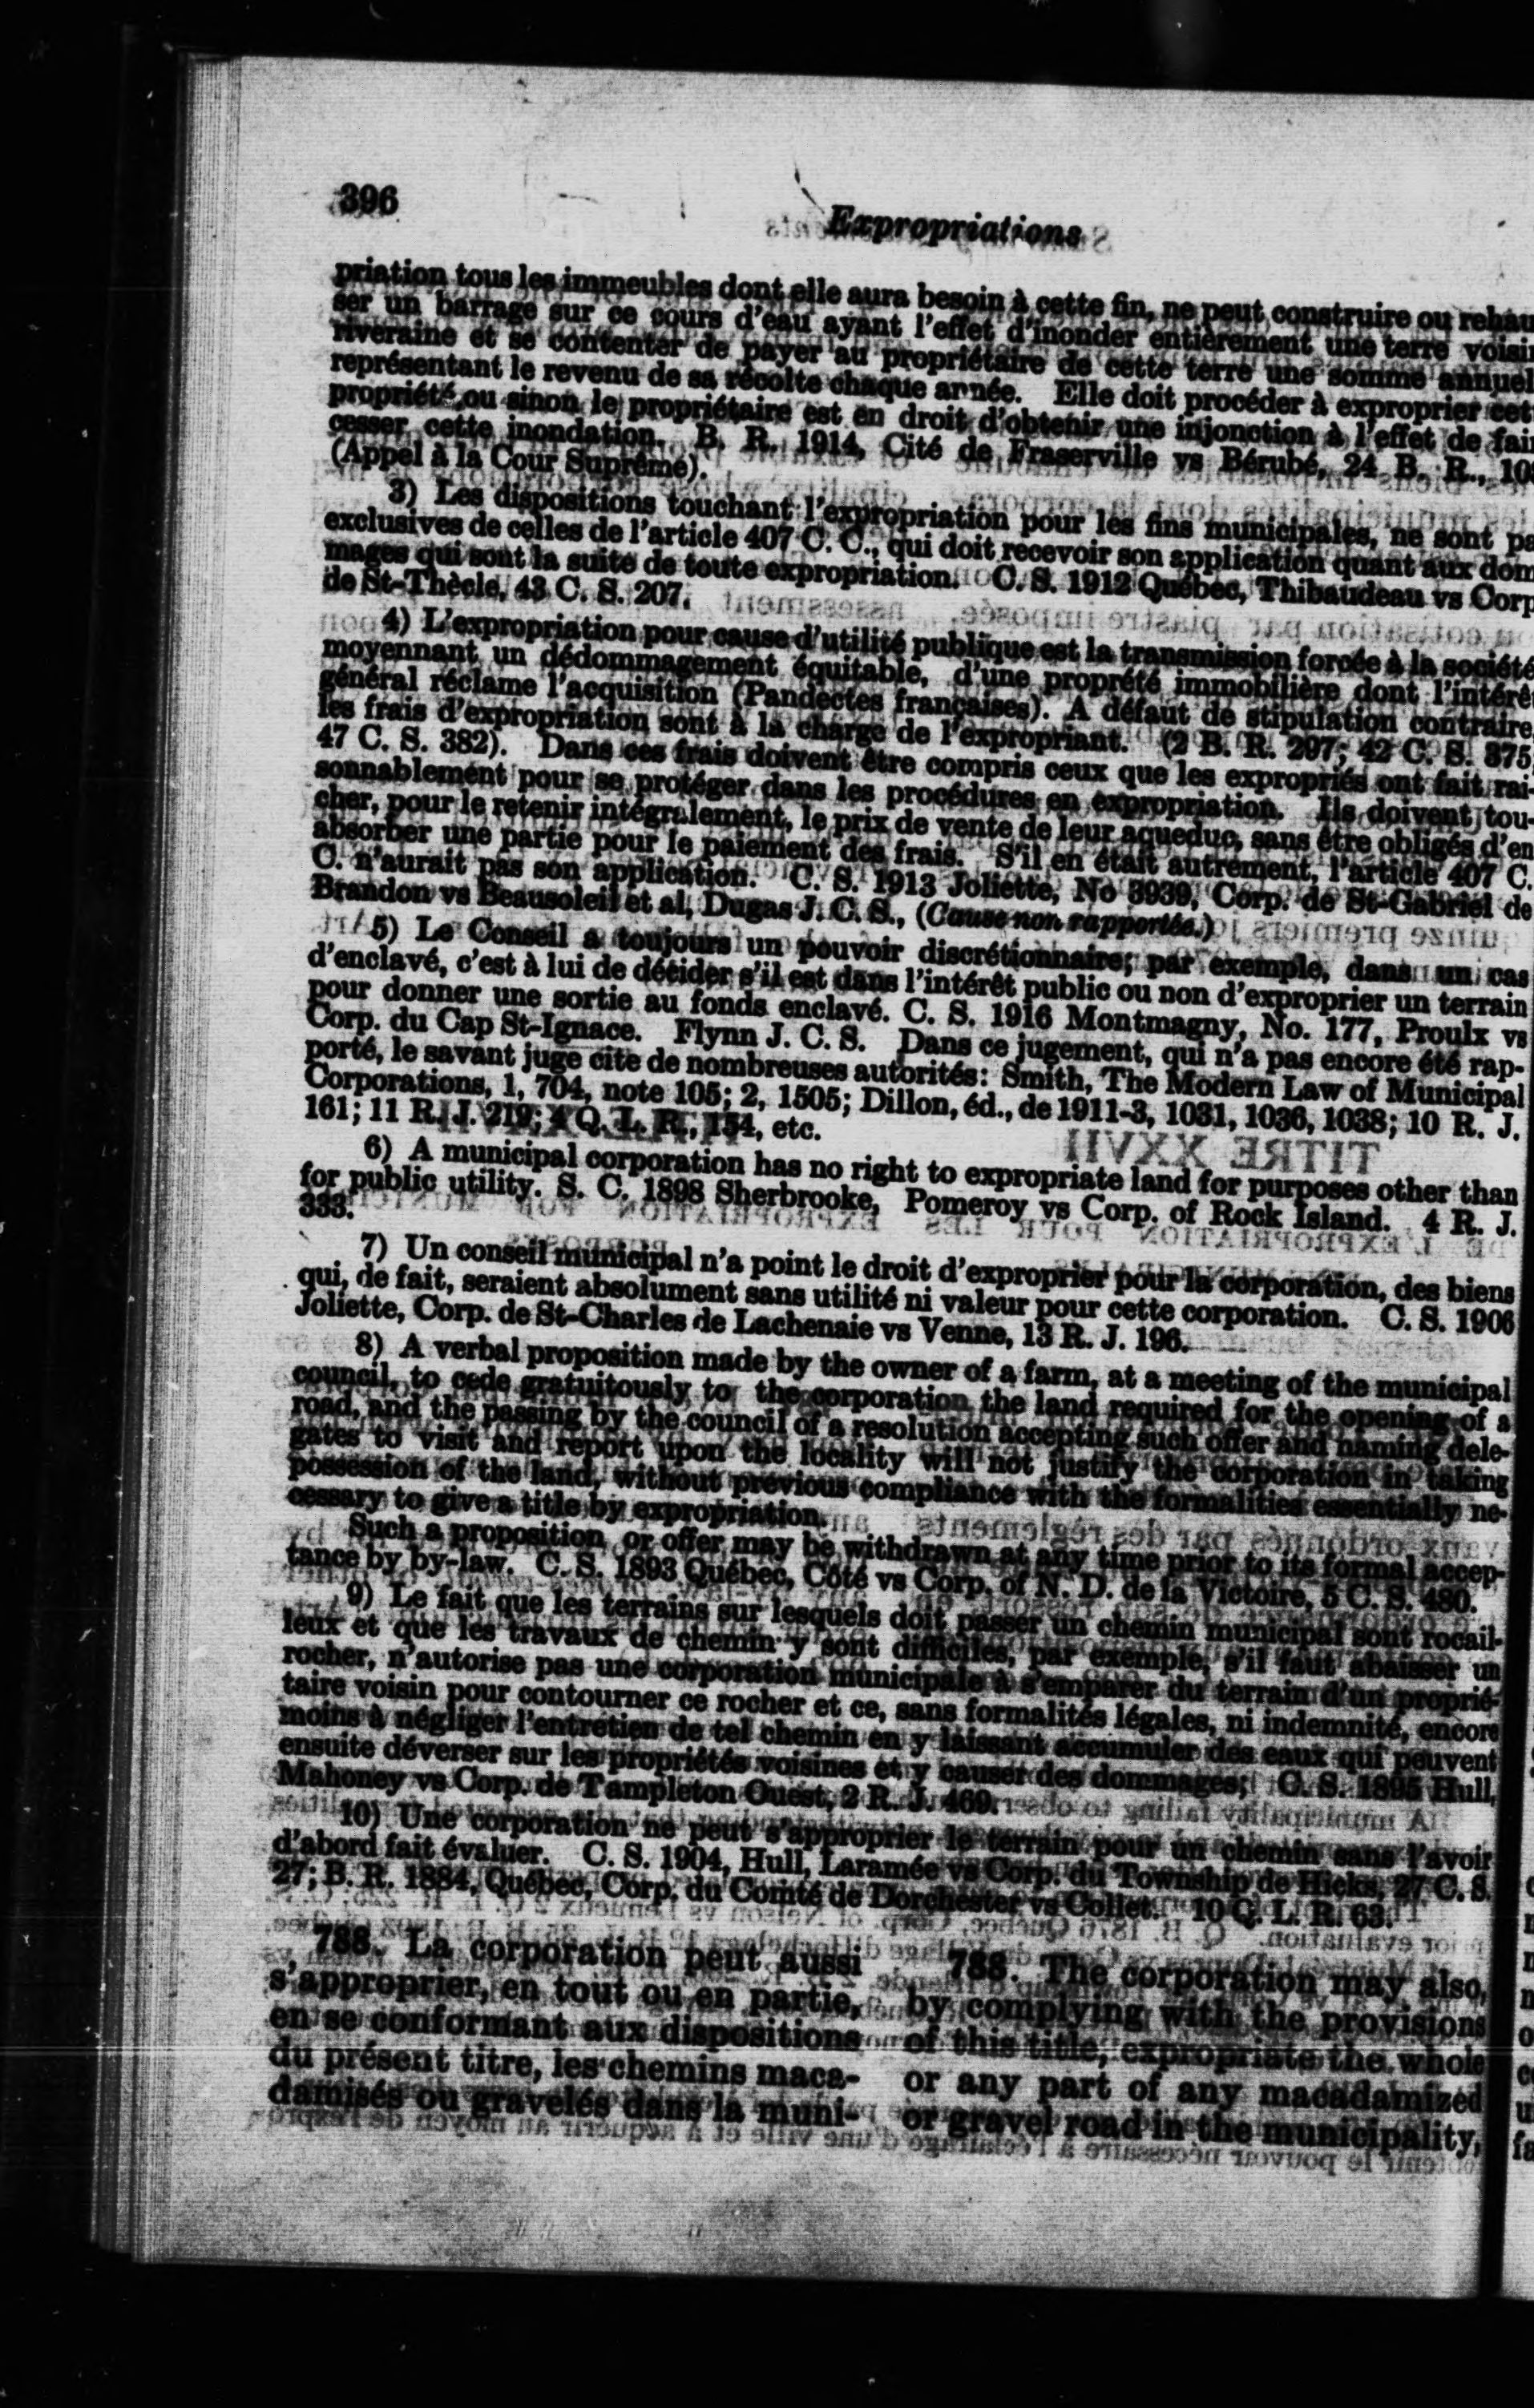 396
Expropriations
priation tous les immeubles dont elle aura besoin à cette fin, ne peut construire ou rehau
ser un barrage sur ce cours d'eau ayant l'effet d'inonder entièrement une terre voisi
riveraine et se contenter de payer au propriétaire de cette terre une somme annuel
représentant le revenu de sa récolte chaque année. Elle doit procéder à exproprier cet
propriété ou sinon le propriétaire est en droit d'obtenir une injonction à l'effet de fai
cesser cette inondation. B. R. 1914, Cité de Fraserville vs Bérubé, 24 B. R., 10
(Appel à la Cour Suprême).
3) Les dispositions touchant l'expropriation pour les fins municipales, ne sont pa
exclusives de celles de l'article 407 C. C., qui doit recevoir son application quant aux dom
mages qui sont la suite de toute expropriation. C. S. 1912 Québec, Thibaudeau vs Corp
de St-Thècle, 43 C. S. 207.
4) L'expropriation pour cause d'utilité publique est la transmission forcée à la société
moyennant un dédommagement équitable, d'une proprété immobilière dont l'intérê
général réclame l'acquisition (Pandectes françaises). A défaut de stipulation contraire,
les frais d'expropriation sont à la charge de l'expropriant. (2 B. R. 297; 42 C. S. 375
47 C. S. 382). Dans ces frais doivent être compris ceux que les expropriés ont fait rai-
sonnablement pour se protéger dans les procédures en expropriation. Ils doivent tou-
cher, pour le retenir intégralement, le prix de vente de leur aqueduc, sans être obligés d'en
absorber une partie pour le paiement des frais. S'il en était autrement, l'article 407 C.
C. n'aurait pas son application. C. S. 1913 Joliette, No 3939, Corp. de St-Gabriel de
Brandon vs Beausoleil et al, Dugas J. C. S., (Cause non rapportée.)
5) Le Conseil a toujours un pouvoir discrétionnaire; par exemple, dans un cas
d'enclavé, c'est à lui de décider s'il est dans l'intérêt public ou non d'exproprier un terrain
pour donner une sortie au fonds enclavé. C. S. 1916 Montmagny, No. 177, Proulx vs
Corp. du Cap St-Ignace. Flynn J. C. S. Dans ce jugement, qui n'a pas encore été rap-
porté, le savant juge cite de nombreuses autorités: Smith, The Modern Law of Municipal
Corporations, 1, 704, note 105; 2, 1505; Dillon, éd., de 1911-3, 1031, 1036, 1038; 10 R. J.
161; 11 R. J. 219; 4 Q. L. R., 154, etc.
6) A municipal corporation has no right to expropriate land for purposes other than
for public utility. S. C. 1898 Sherbrooke, Pomeroy vs Corp. of Rock Island. 4 R. J.
333.
7) Un conseil municipal n'a point le droit d'exproprier pour la corporation, des biens
qui, de fait, seraient absolument sans utilité ni valeur pour cette corporation. C. S. 1906
Joliette, Corp. de St-Charles de Lachenaie vs Venne, 13 R. J. 196.
8) A verbal proposition made by the owner of a farm, at a meeting of the municipal
council, to cede gratuitously to the corporation the land required for the opening of a
road, and the passing by the council of a resolution accepting such offer and naming dele-
gates to visit and report upon the locality will not justify the corporation in taking
possession of the land, without previous compliance with the formalities essentially ne-
cessary to give a title by expropriation.
Such a proposition or offer may be withdrawn at any time prior to its formal accep-
tance by by-law. C. S. 1893 Québec, Côté vs Corp. of N. D. de la Victoire, 5 C. S. 480.
9) Le fait que les terrains sur lesquels doit passer un chemin municipal sont rocail-
leux et que les travaux de chemin y sont difficiles, par exemple, s'il faut abaisser un
rocher, n'autorise pas une corporation municipale à s'emparer du terrain d'un proprié-
taire voisin pour contourner ce rocher et ce, sans formalités légales, ni indemnité, encore
moins à négliger l'entretien de tel chemin en y laissant accumuler des eaux qui peuvent
ensuite déverser sur les propriétés voisines et y causer des dommages; C. S. 1895 Hull,
Mahoney vs Corp. de Tampleton Ouest, 2 R. J. 469.
10) Une corporation ne peut s'approprier le terrain pour un chemin sans l'avoir
d'abord fait évaluer. C. S. 1904, Hull, Laramée vs Corp. du Township de Hicks, 27 C. S.
27; B. R. 1884, Québec, Corp. du Comté de Dorchester vs Collet. 10 Q. L. R. 63.
788. La corporation peut aussi
s'approprier, en tout ou en partie,
en se conformant aux dispositions
du présent titre, les chemins maca-
damisés ou gravelés dans la muni-
788. The corporation may also,
by complying with the provisions
of this title, expropriate the whole
or any part of any macadamized
or gravel road in the municipality,